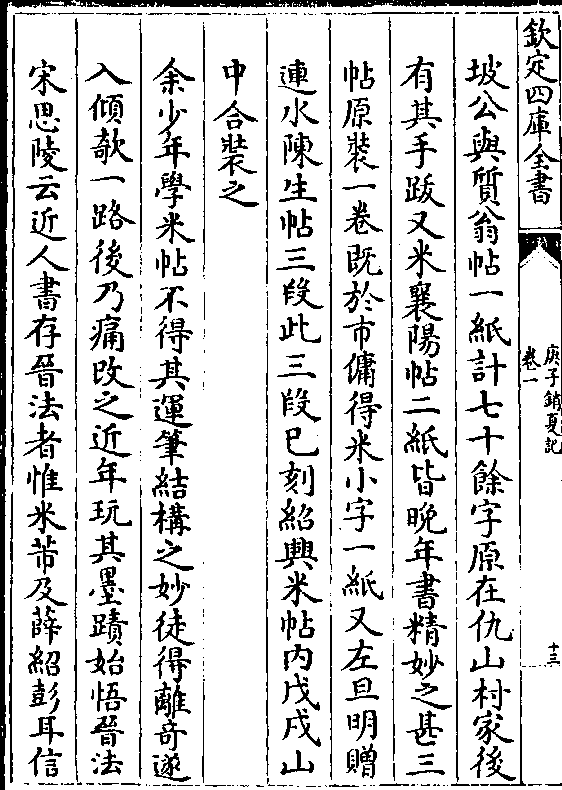 欽定四庫全書
庚子銷夏記
卷一
十三
坡公與質翁帖一紙計七十餘字原在仇山村家後
有其手跋又米襄陽帖二紙皆晚年書精妙之甚三
帖原裝一卷既於市傭得米小字一紙又左旦明贈
連水陳生帖三段此三段已刻紹興米帖内戊戌山
中合裝之
余少年學米帖不得其運筆結構之妙徒得離竒遂
入傾欹一路後乃痛改之近年玩其墨蹟始悟晉法
宋思陵云近人書存晉法者惟米芾及薛紹彭耳信